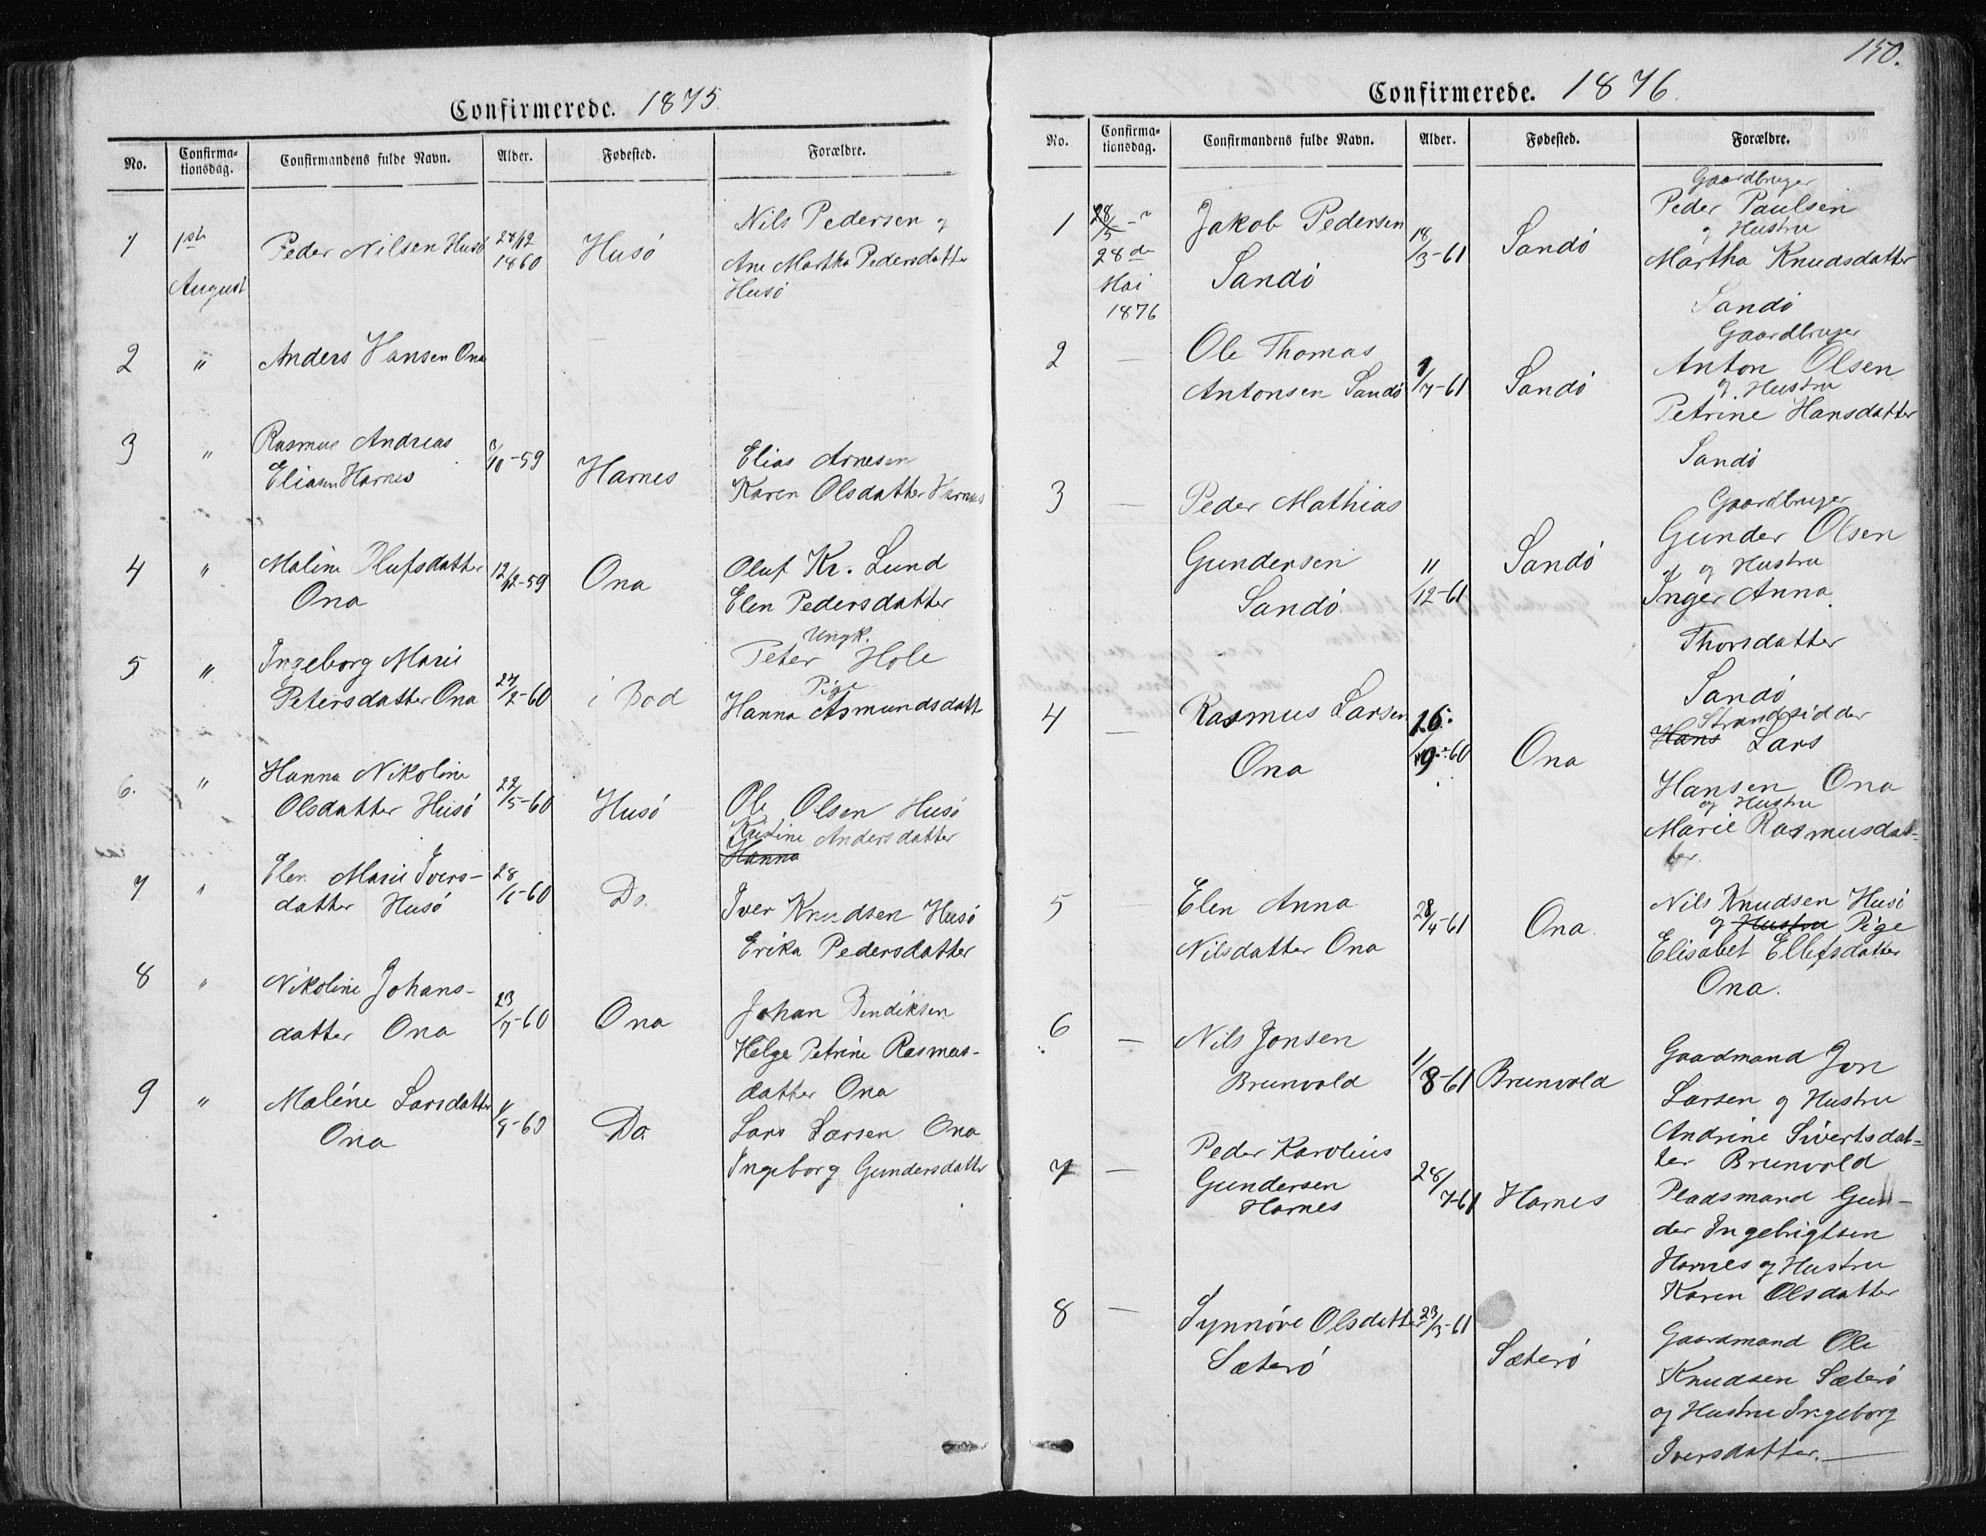 Confirmerede. 1875.
No.
Confirma-
tionsdag.
Confirmandens fulde Navn.
Alder.
Fødested.
Forældre.
1
1st
August
Peder Nilsen Husö
24/12
1860
Husö
Nils Pedersen og
Ane Martha Pedersdatter
Husö
2
"
Anders Hansen Ona
3
"
Rasmus Andreas
Eliasen Harnes
/10-59
Harnes
Elias Arnesen
Karen Olsdatter Harnes
4
"
Maline Olufsdatter
Ona
12/12-59
Ona
Oluf Kr. Lund
Elen Pedersdatter
5
"
Ingeborg Marie
Petersdatter Ona
27/2-60
i Bod
Ungk.
Peter Hole
Pige
Hanna Asmundsdatt
6.
"
Hanna Nikoline
Olsdatter Husö
22/5-60
Husö
Ole Olsen Husö
Kristine Andersdatter
Hanna
7
"
Elen Marie Ivers-
datter Husö
28
-60
Do.
Iver Knudsen Husö
Erika Pedersdatter
8
"
Nikoline Johans-
datter Ona
23/7-60
Ona
Johan Bendiksen
Helge Petrine Rasmus-
datter Ona
9
"
Maléne Larsdatter
Ona
/9-60
Do
Lars Larsen Ona
Ingeborg Gundersdatter
150.
Confirmerede. 1876.
No.
Confirma-
tionsdag.
Confirmandens fulde Navn.
Alder.
Fødested.
Forældre.
1
28/5
28de
Mai
1876
Jakob Pedersen
Sandö
18/3-61
Sandö
Gaardbruger
Peder Paulsen
og Hustru
Martha Knudsdatter
Sandö
2
—
Ole Thomas
Antonsen Sandö
/7-61
Sandö
Gaardbruger
Anton Olsen
og Hustru
Petrine Hansdatter
Sandö
3
—
Peder Mathias
Gundersen
Sandö
11/12-61
Sandö
Gaardbruger
Gunder Olsen
og Hustru
Inger Anna
Thorsdatter
Sandö
4
—
Rasmus Larsen
Ona
16/9-60
Ona
Strandsidder
Hans Lars
Hansen Ona
og Hustru
Marie Rasmusdat-
ter.
5
—
Elen Anna
Nilsdatter Ona
28/4-61
Ona
Nils Knudsen Husö
og Hustru Pige
Elisabet Ellefsdatter
Ona.
6
—
Nils Jonsen
Brunvold
1/8-61
Brunvold
Gaardmand Jon
Larsen og Hustru
Andrine Sivertsdat-
ter Brunvold
7
—
Peder Karolius
Gundersen
Harnes
28/7-61
Harnes
Pladsmand Gun-
der Ingebrigtsen
Harnes og Hustru
Karen Olsdatter
8
—
Synnöve Olsdatter
Sæterö
23/3-61
Sæterö
Gaardmand Ole
Knudsen Sæterö
og Hustru Ingeborg
Iversdatter.—